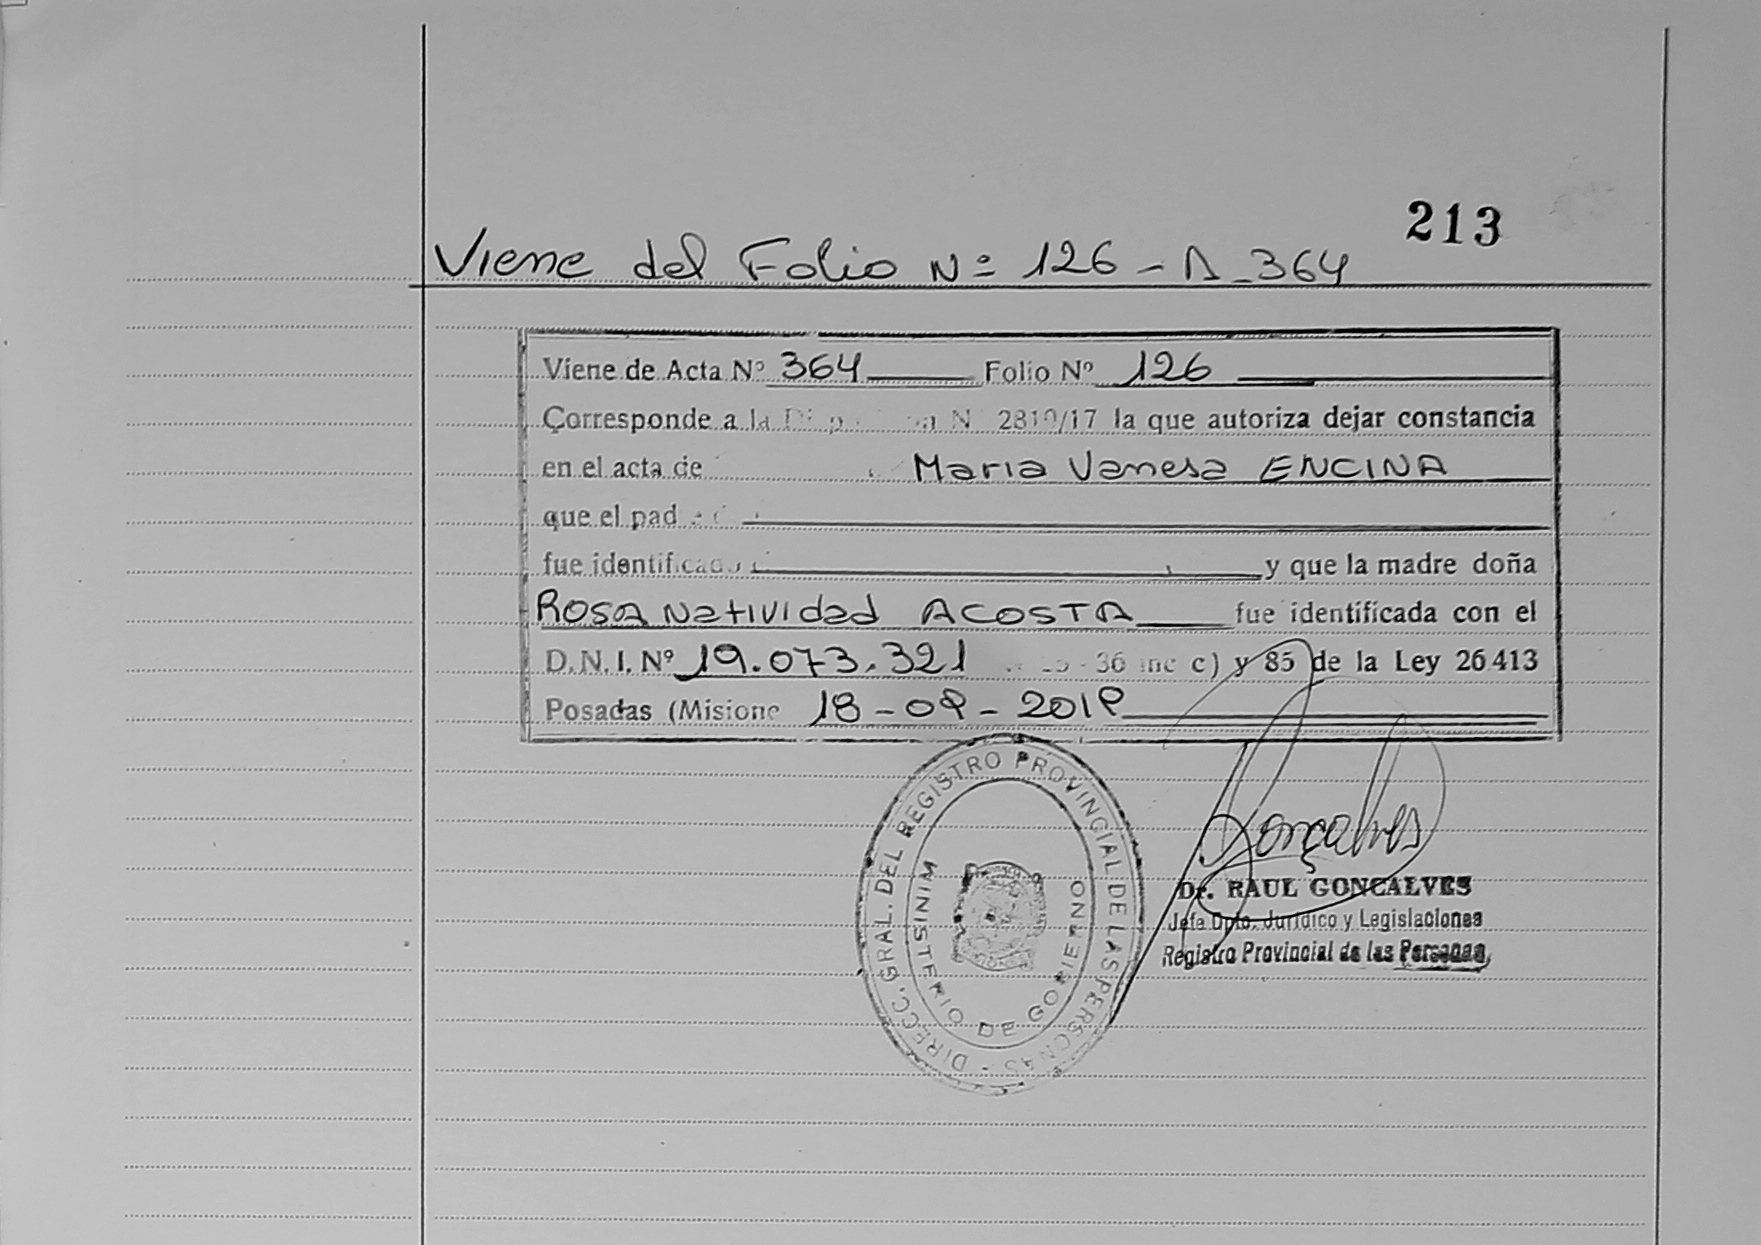 213
Viene del Folio Nº 126 - A - 364
Viene de Acta Nº 364 Folio Nº 126
Corresponde a la N 2810/17 la que autoriza dejar constancia
en el acta de Maria Vanesa ENCINA
que el pad
fue identificado y que la madre doña
ROSA Natividad ACOSTA fue identificada con el
D.N.I. Nº 19.073.321 36 inc c) y 85 de la Ley 26.413
Posadas (Misione 18-09-2019
DIRECC. GRAL. DEL REGISTRO PROVINCIAL DE LAS PERSONAS -
MINISTERIO DE GOBIERNO
Gonçalves
Dr. RAUL GONCALVES
Jefe Dpto. Jurídico y Legislaciones
Registro Provincial de las Personas